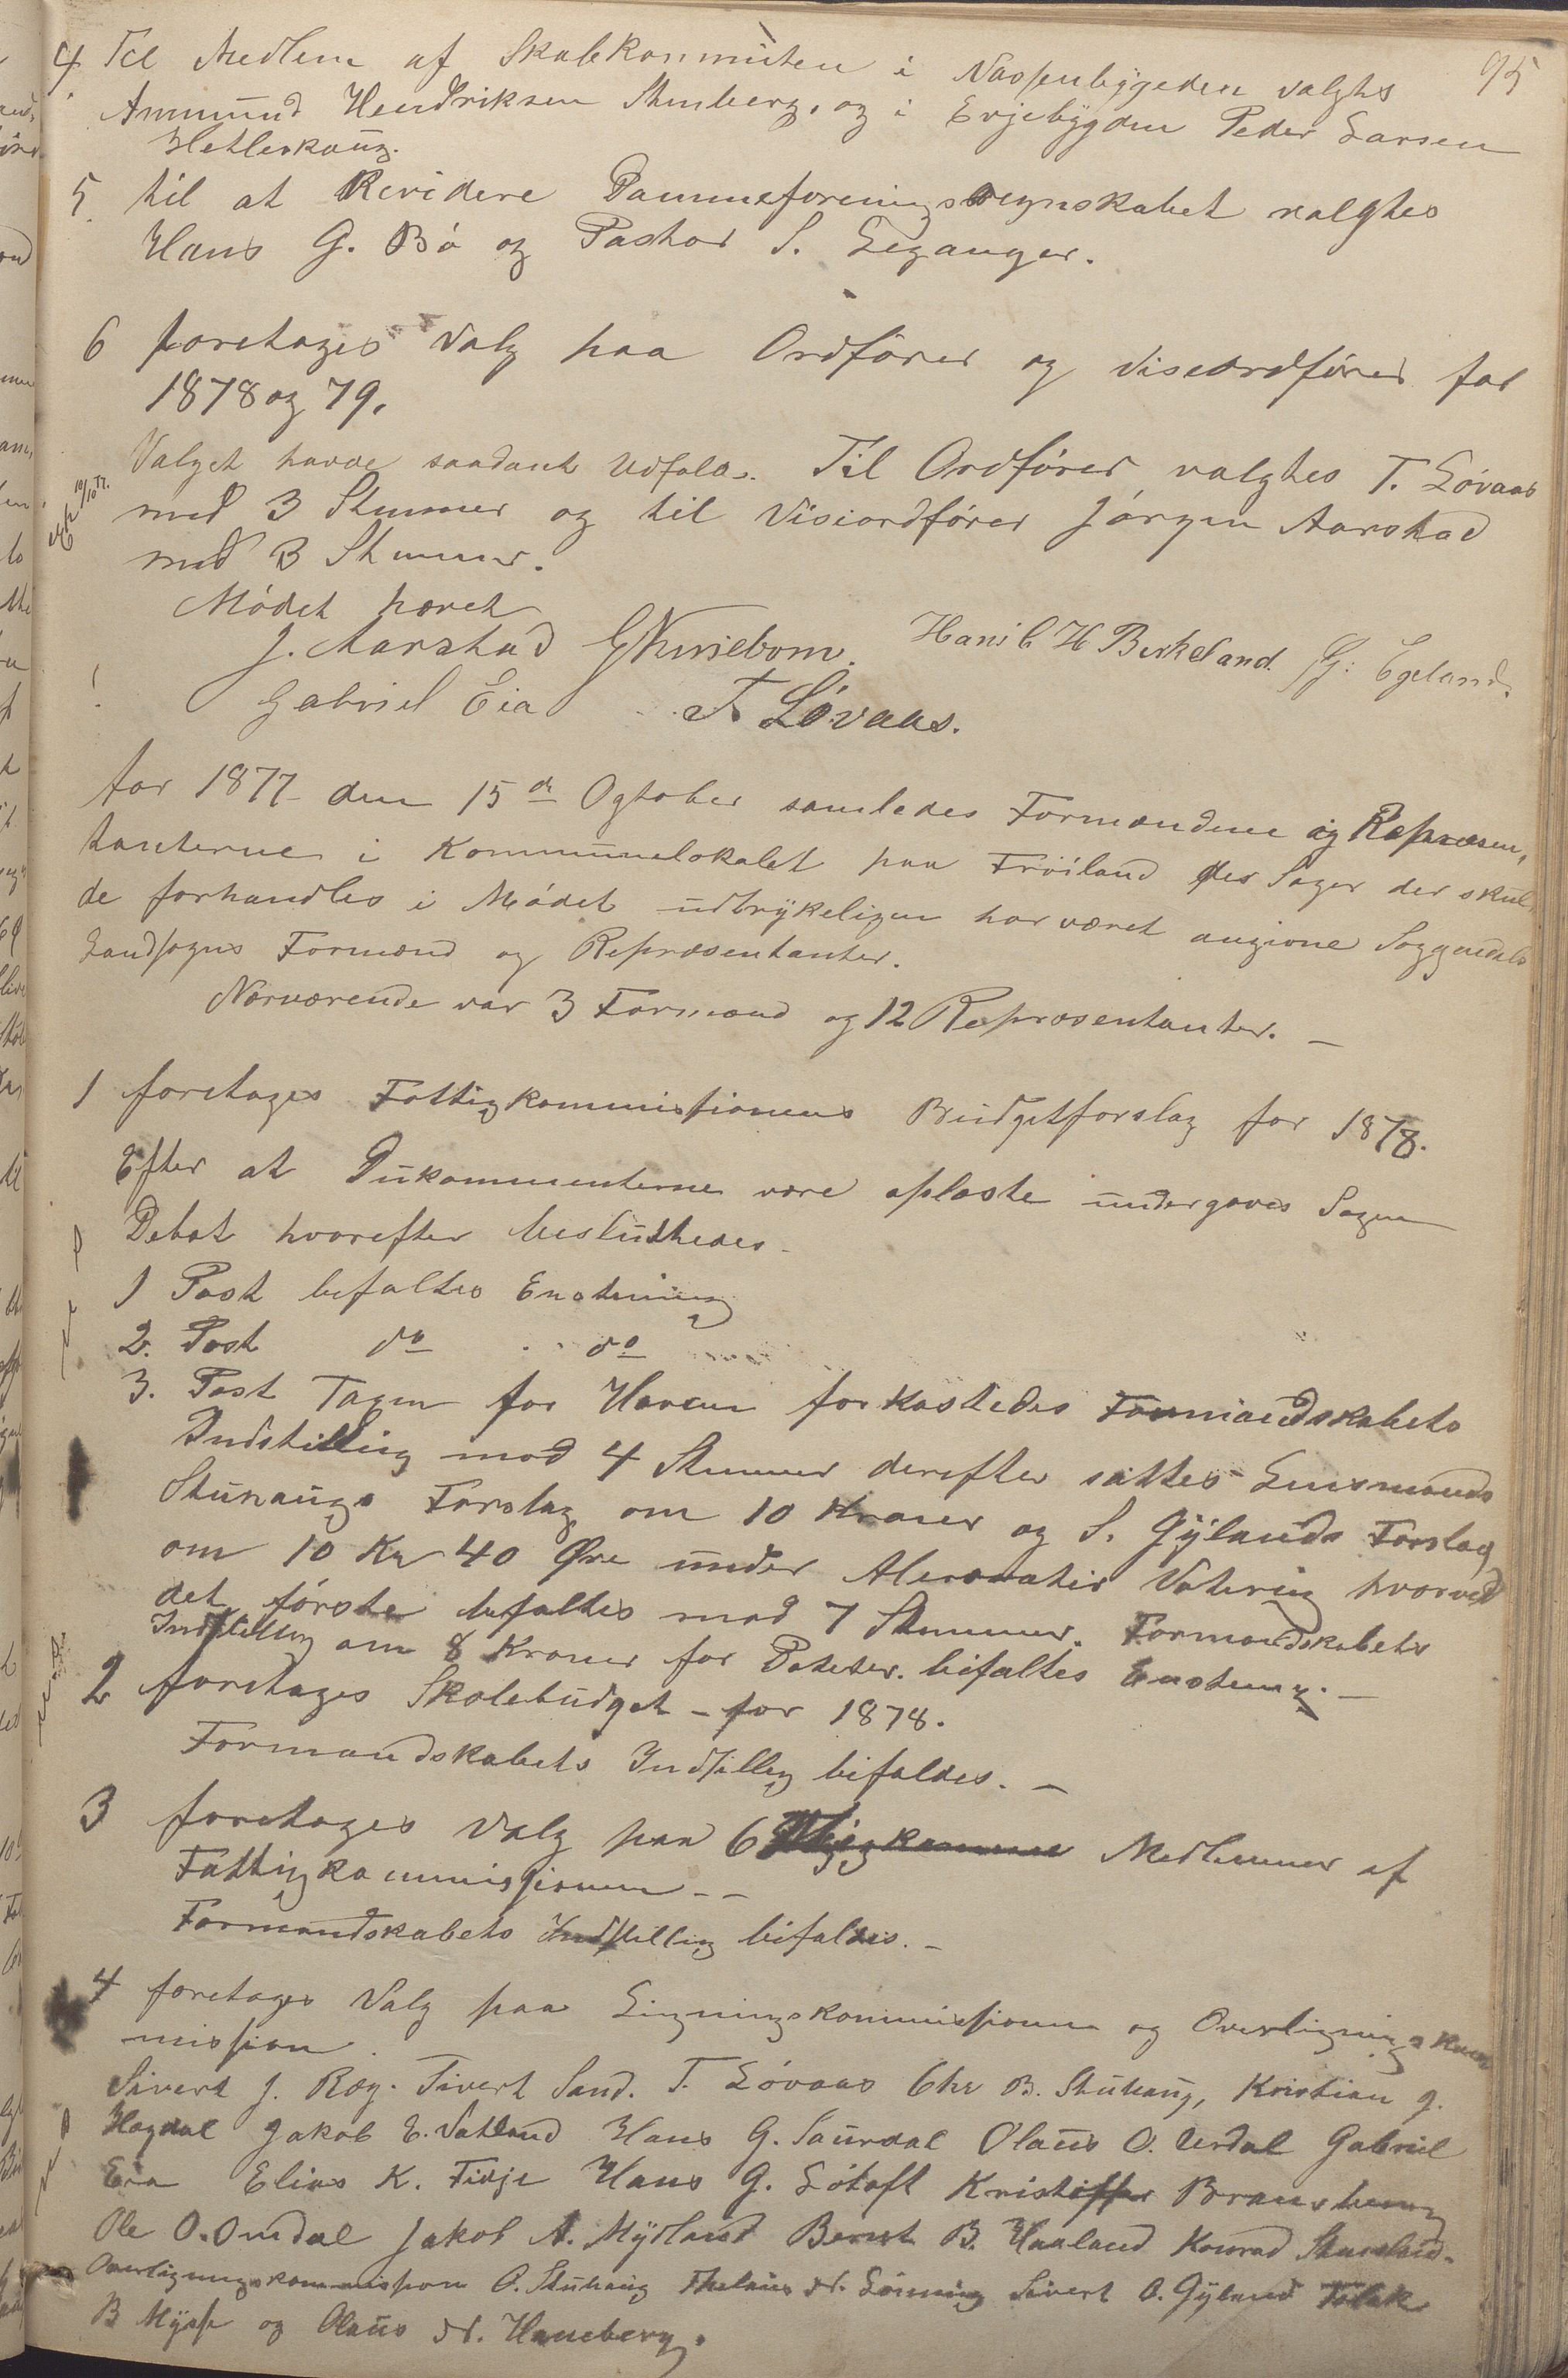 95
4 Til Medlem af Skabkommiten i Vassenbygeden valgtes
Ammund Hendriksen Stenberg, og i Evjebygden Peder Larsen
Hetlerhaug.
5 til at Revidere Dammeforeningsregnskabet valgtes
Hans G. Bø og Pastor S. Leganger.
6 foretages Valg paa Ordfører og viseordfører for
1878 og 79.
Valget havde saadant Udfald. Til Ordfører valgtes T. Løvaas
med 3 Stemmer og til Visiordfører Jørgen Aarstad
med 3 Stemmer.
Mødet hævet
J. Aarstad Hans C H Birkeland. G: Egeland.
Gabriel Eia T Løvaas.
Aar 1877 den 15de Ogtober samledes Formændene og Repræsen,
tanterne i Kommunelokalet paa Frøiland des Sager der skul,
de forhandles i Mødet udtrykeligen har været angivne Soggnedals
Landsogns Formænd og Repræsentanter.
Nærværende var 3 Formænd og 12 Repræsentanter. —
1 foretages Fattigkommissionens Budgetforslag for 1878.
Efter at Dukommenterne vare oplæste undergaves Sagen
Debat hvorefter besluttedes.
1 Post befaltes Enstemig
2. Post do do
3. Post Tagen for Haven forkastedes Formandskabets
Indstilling mod 4 Stemmer derefter sattes Lensmands
Stuhaugs Forslag om 10 Kroner og S. Gylands Forslag
om 10 Kr 40 Øre under Votering hvorved
det første befaltes mod 7 Stemmer. Formandskabets
Indstilling om 8 Kroner for Poteter. bifaltes Enstemg. —
2 foretages Skolebudget - for 1878.
Formandskabets Indstilling bifaldes. —
3 foretages Valg paa 6 Medlemmer af
Fattigkommissionen - -
Formandskabets Indstilling bifaldes. -
4 foretages Valg paa Ligningskommissionen og Overligningskom
mission.
Sivert J. Røg. Sivert Sand. T. Løvaas Chr B. Stuhaug, Kristian J.
Høgdal Jakob E. Vatland Hans G. Saurdal Olaus O. Urdal Gabriel
Eia Elias K. Tivje Hans G. Løtoft
Ole O. Omdal Jakob A. Mydland Bernt B. Haaland Konrad
Overligningskommission O. Stuhaug Sivert O. Gyland Tolak
B Mysse og Olaus N. Haneberg.